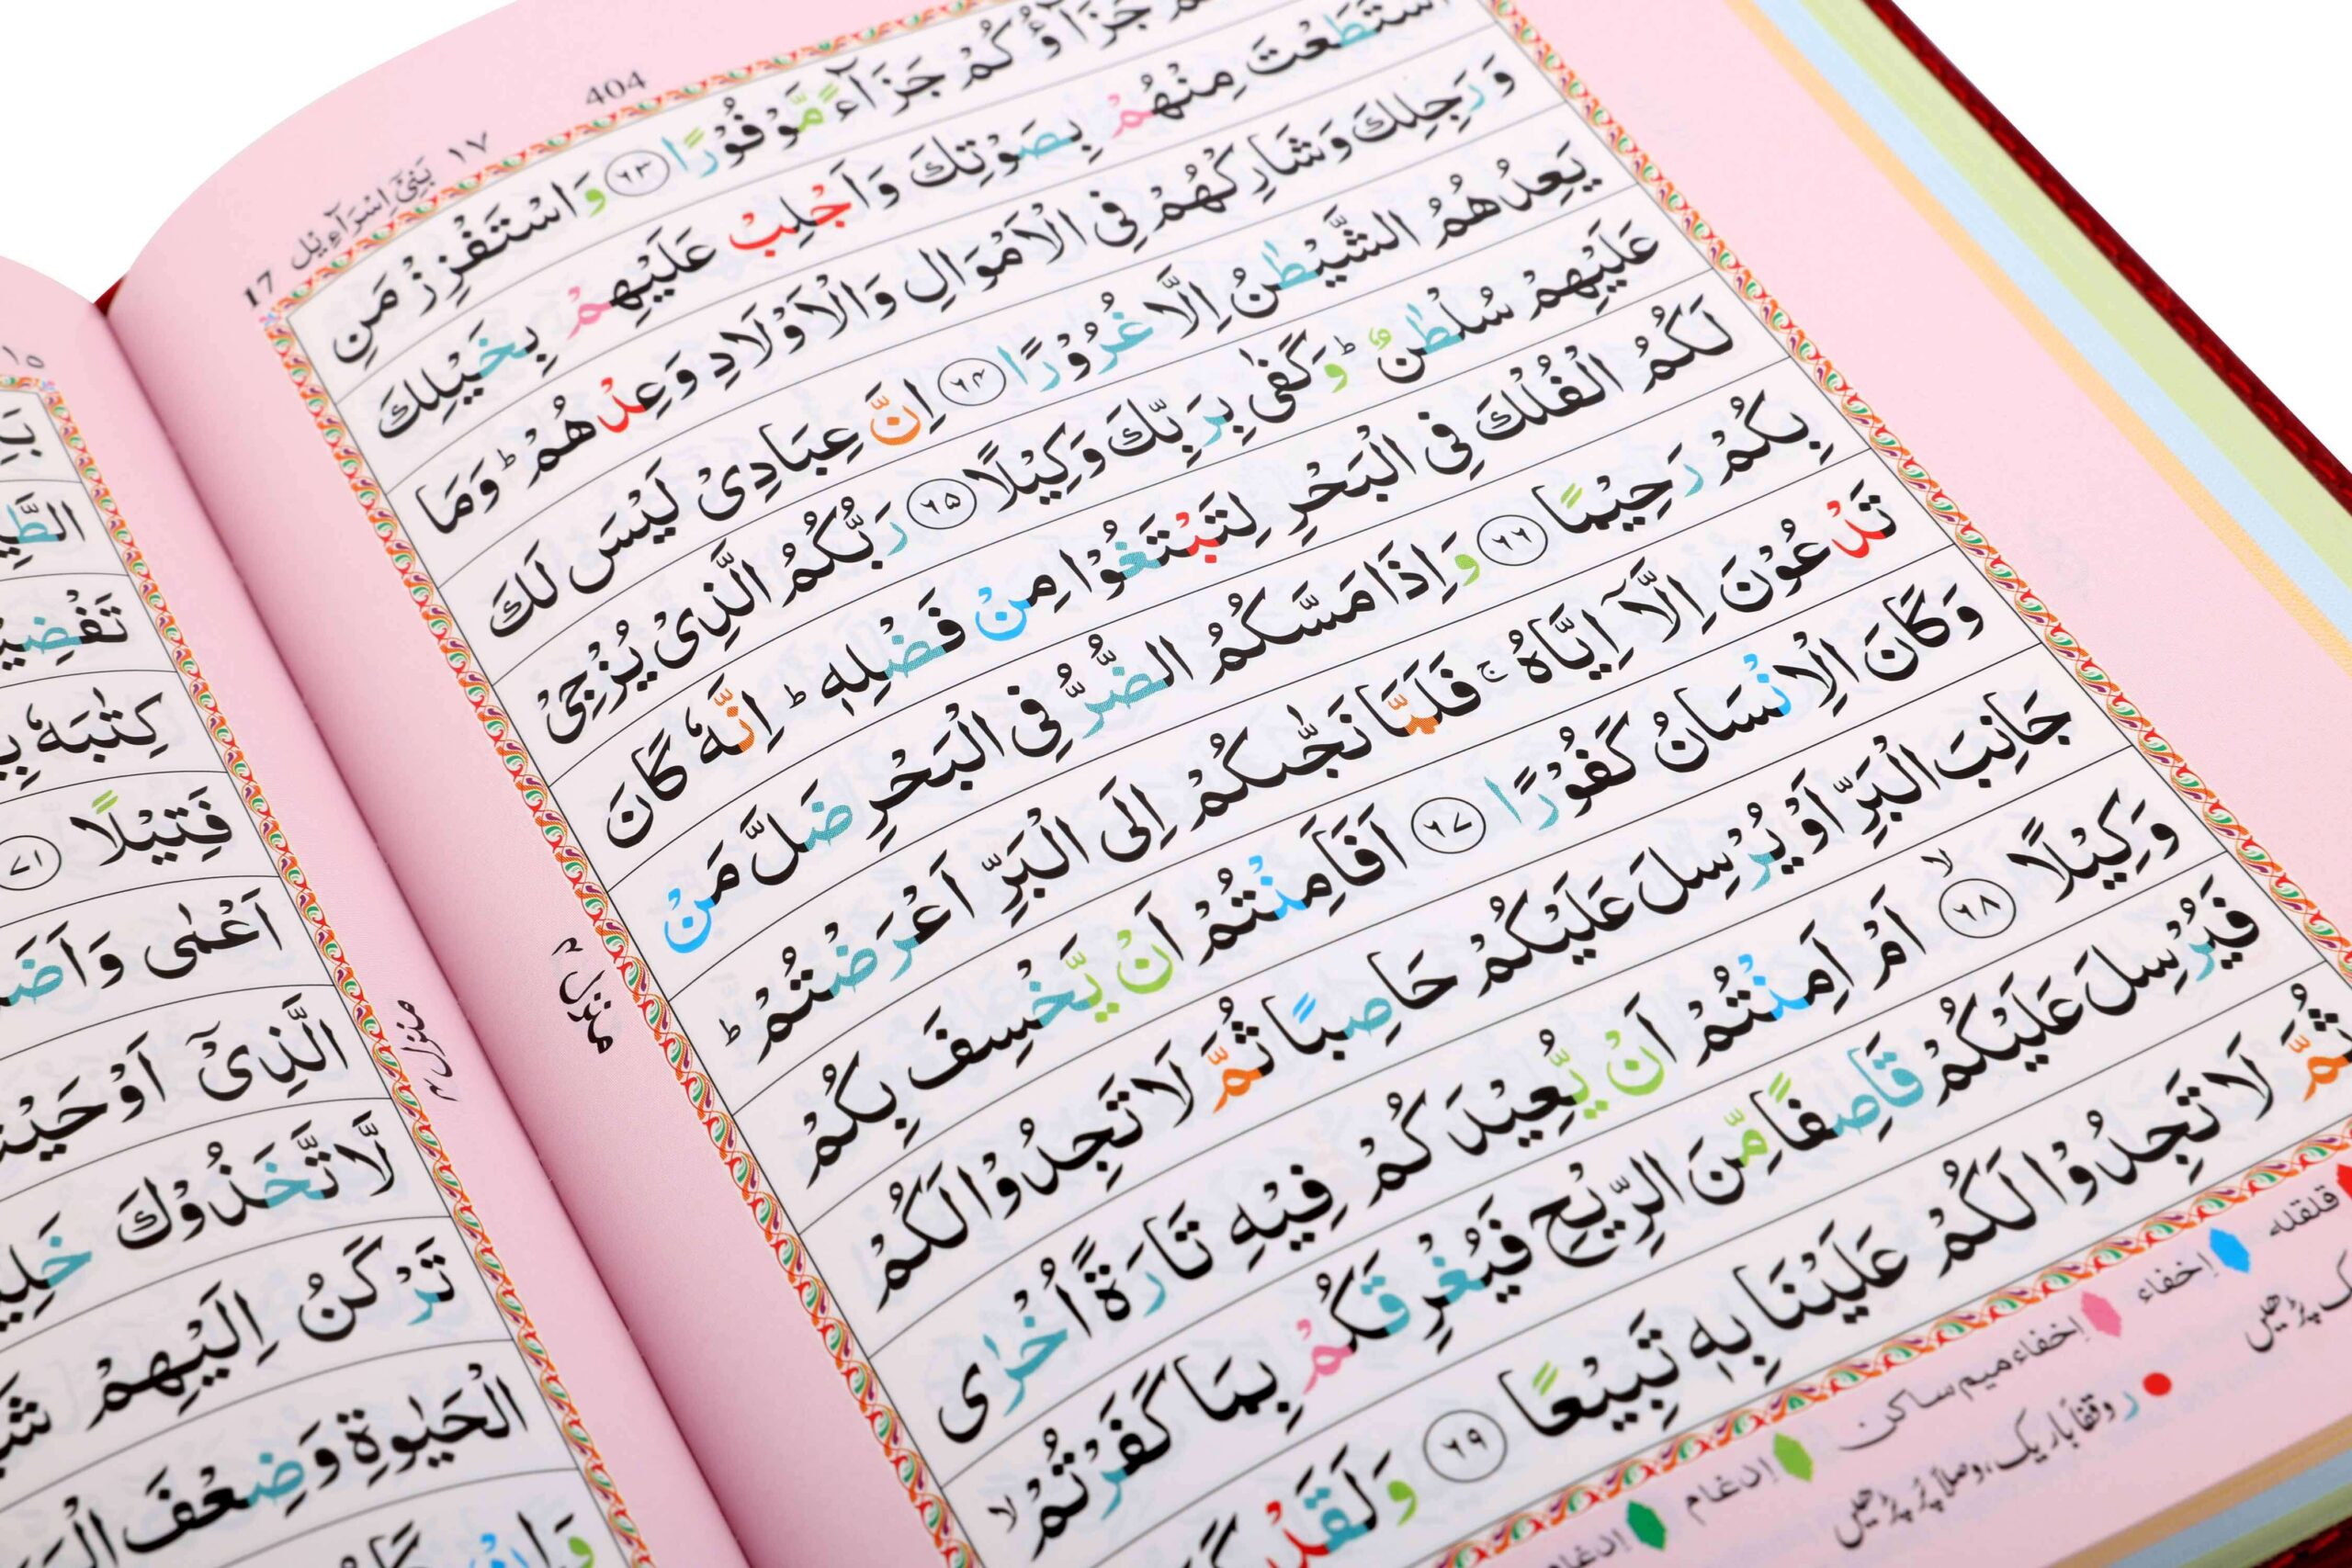 404
17 بَنِیْۤ اِسْرَآءِیْل ١٧
جَزَآؤُكُمْ جَزَآءً مَّوْفُوْرًا ﴿٦٣﴾ وَاسْتَفْزِزْ مَنِ
اسْتَطَعْتَ مِنْهُمْ بِصَوْتِكَ وَاَجْلِبْ عَلَیْهِمْ بِخَیْلِكَ
وَرَجِلِكَ وَشَارِكْهُمْ فِی الْاَمْوَالِ وَالْاَوْلَادِ وَعِدْهُمْ ؕ وَمَا
یَعِدُهُمُ الشَّیْطٰنُ اِلَّا غُرُوْرًا ﴿٦٤﴾ اِنَّ عِبَادِیْ لَیْسَ لَكَ
عَلَیْهِمْ سُلْطٰنٌ ؕ وَكَفٰی بِرَبِّكَ وَكِیْلًا ﴿٦٥﴾ رَبُّكُمُ الَّذِیْ یُزْجِیْ
لَكُمُ الْفُلْكَ فِی الْبَحْرِ لِتَبْتَغُوْا مِنْ فَضْلِهٖ ؕ اِنَّهٗ كَانَ
بِكُمْ رَحِیْمًا ﴿٦٦﴾ وَاِذَا مَسَّكُمُ الضُّرُّ فِی الْبَحْرِ ضَلَّ مَنْ
تَدْعُوْنَ اِلَّاۤ اِیَّاهُ ۚ فَلَمَّا نَجّٰىكُمْ اِلَی الْبَرِّ اَعْرَضْتُمْ ؕ
وَكَانَ الْاِنْسَانُ كَفُوْرًا ﴿٦٧﴾ اَفَاَمِنْتُمْ اَنْ یَّخْسِفَ بِكُمْ
جَانِبَ الْبَرِّ اَوْ یُرْسِلَ عَلَیْكُمْ حَاصِبًا ثُمَّ لَا تَجِدُوْا لَكُمْ
وَكِیْلًا ﴿٦٨﴾ ۙ اَمْ اَمِنْتُمْ اَنْ یُّعِیْدَكُمْ فِیْهِ تَارَةً اُخْرٰی
فَیُرْسِلَ عَلَیْكُمْ قَاصِفًا مِّنَ الرِّیْحِ فَیُغْرِقَكُمْ بِمَا كَفَرْتُمْ ۙ
ثُمَّ لَا تَجِدُوْا لَكُمْ عَلَیْنَا بِهٖ تَبِیْعًا ﴿٦٩﴾ وَلَقَدْ
منزل ۴
قلقله اِخفاء اِخفاء میم ساکن اِدغام
ر وقفاً باریک، وصلاً پُر پڑھیں
١٥
تَفْضِی
كِتٰبَهٗ
فَتِیْلًا ﴿٧١﴾
اَعْمٰی وَاَضَ
الَّذِیْۤ اَوْحَیْن
لَّاتَّخَذُوْكَ خَلِی
تَرْكَنُ اِلَیْهِمْ
الْحَیٰوةِ وَضِعْفَ
منزل ۴